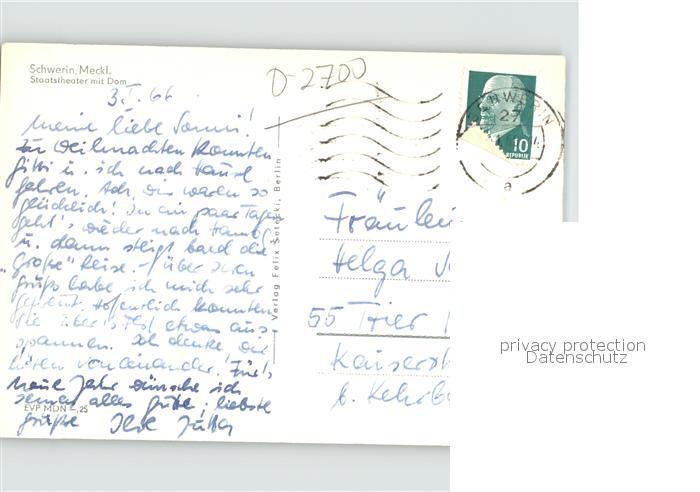 Schwerin/Meckl.
Staatstheater mit Dom
D-2700
3.I.66
Meine liebe
Zu Weihnachten konnten
u. ich nach Hause
fahren. Ach, wir waren so
glücklich! In ein paar Tagen
geht's wieder nach
u. dann steigt bald die
"große" Reise. - Über Ihren
Gruß habe ich mich sehr
gefreut. Hoffentlich konnten
Sie über's Fest etwas aus-
spannen. Ich denke, wir
hören voneinander! Für's
neue Jahr wünsche ich
alles Gute; liebste
Grüße Ihre Jutta
EVP MDN -,25
Verlag Felix Setecki, Berlin
SCHWERIN
27
10
a
Fräulein
Helga
55 Trier
Kaiserst
b. Kehrb
privacy protection
Datenschutz